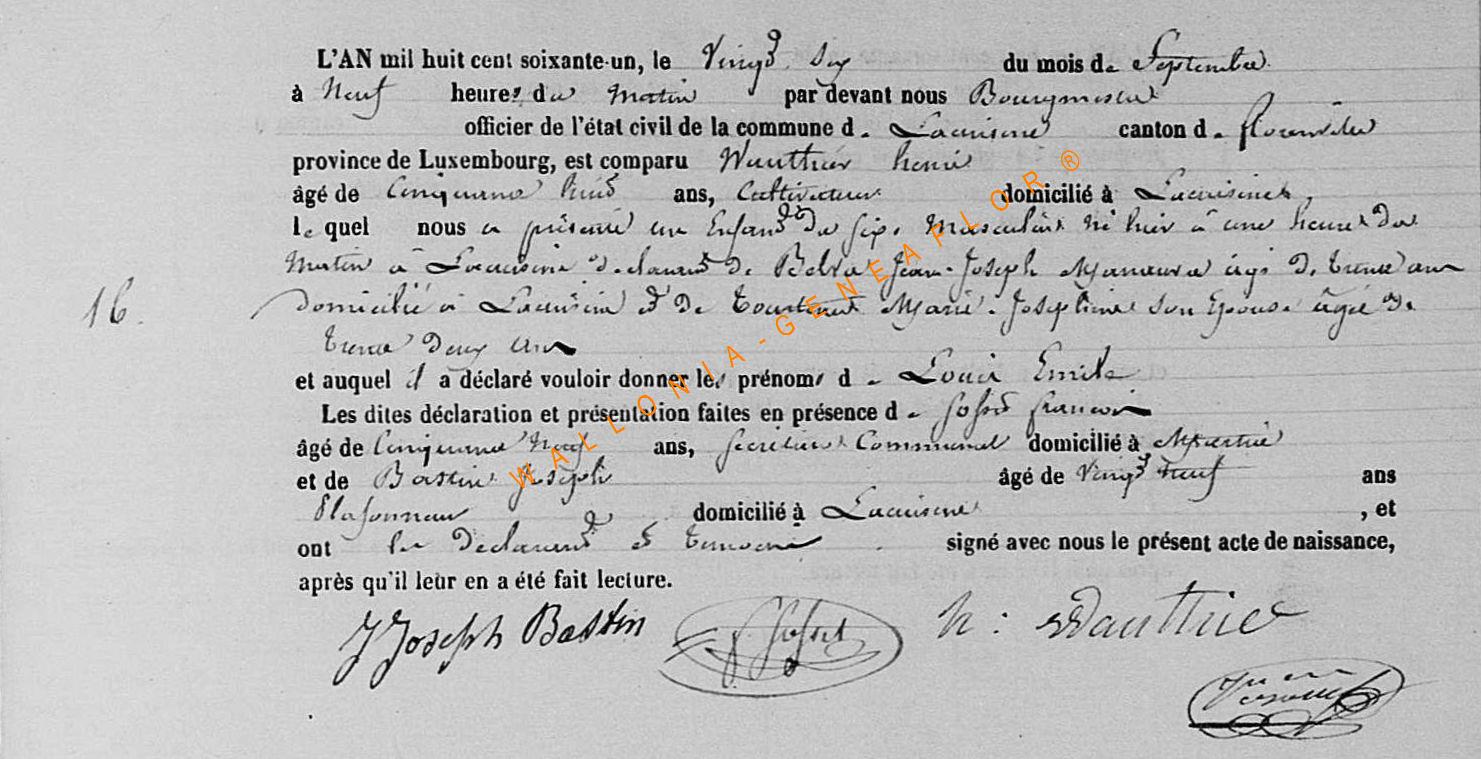 L'AN mil huit cent soixante-un, le Vingt Six du mois de Septembre
à Neuf heures du Matin par devant nous Bourgmestre
officier de l'état civil de la commune de Lacuisine canton de florenville
province de Luxembourg, est comparu Wauthier henri
âgé de Cinquante huit ans, Cultivateur domicilié à Lacuisine
le quel nous a présenté un Enfant du Sexe Masculin né hier à une heure du
Matin à Lacuisine déclarant de Belva Jean-Joseph Manœuvre âgé de trente ans
16. domicilié à Lacuisine et de Marie-Joséphine son Epouse âgée de
trente deux ans
et auquel il a déclaré vouloir donner les prénoms de Louis Emile
Les dites déclaration et présentation faites en présence de françois
âgé de Cinquante Neuf ans, Secrétaire Communal domicilié à
et de Bastin Joseph âgé de Vingt Neuf ans
Plafonneur domicilié à Lacuisine , et
ont les Déclarant et témoins signé avec nous le présent acte de naissance,
après qu'il leur en a été fait lecture.
J Joseph Bastin h: Wauthier
WALLONIA-GENEAFLOR®